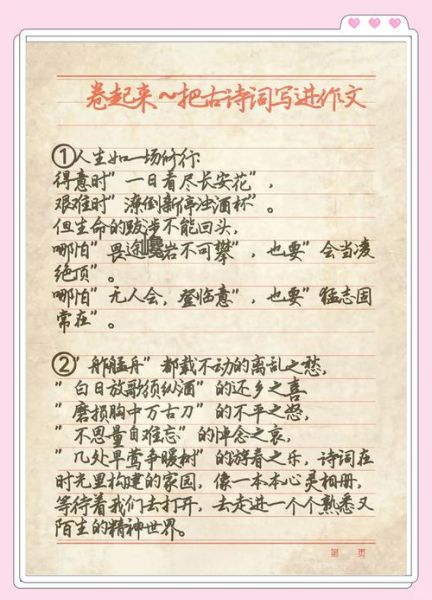 卷起来~把古诗词写进作文
①人生如一场修行
得意时"一日看尽长安花",
艰难时"潦倒新停浊酒杯"。
但生命的跋涉不能回头,
哪怕"畏途巉岩不可攀",也要"会当凌
绝顶"。
哪怕"无人会,登临意",也要"猛志固
常在"。
②"舴艋舟"都载不动的离乱之愁,
"白日放歌须纵酒"的还乡之喜
"磨损胸中万古刀"的不平之怒,
"不思量自难忘"的悼念之哀,
"几处早莺争暖树"的游春之乐,诗词在
时光里构建的家园,像一本本心灵相册,
等待着我们去打开,去走进一个个熟悉又
陌生的精神世界。
第 页